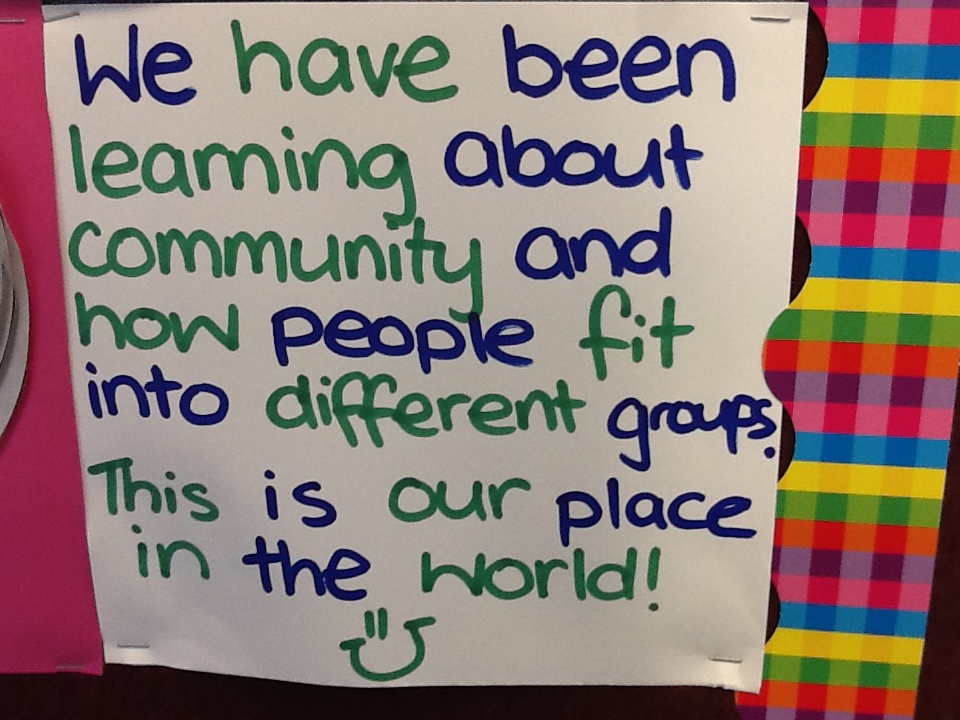 We have been
learning about
community and
how people fit
into different groups.
This is our place
in the world!